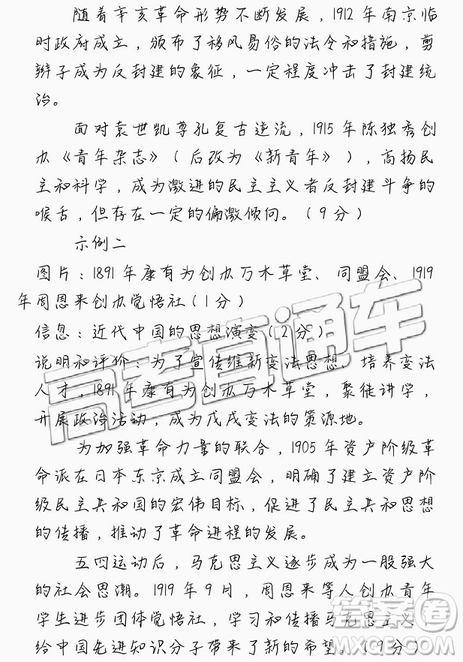 随着辛亥革命形势不断发展，1912年南京临
时政府成立，颁布了移风易俗的法令和措施，剪
辫子成为反封建的象征，一定程度冲击了封建统
治。
面对袁世凯尊孔复古逆流，1915年陈独秀创
办《青年杂志》（后改为《新青年》），高扬民
主和科学，成为激进的民主主义者反封建斗争的
喉舌，但存在一定的偏激倾向。（9分）
示例二
图片：1891年康有为创办万木草堂、同盟会、1919
年周恩来创办觉悟社（1分）
信息：近代中国的思想演变（2分）
说明和评价：为了宣传维新变法思想、培养变法
人才，1891年康有为创办万木草堂，聚徒讲学，
开展政治活动，成为戊戌变法的策源地。
为加强革命力量的联合，1905年资产阶级革
命派在日本东京成立同盟会，明确了建立资产阶
级民主共和国的宏伟目标，促进了民主共和思想
的传播，推动了革命进程的发展。
五四运动后，马克思主义逐步成为一股强大
的社会思潮。1919年9月，周恩来等人创办青年
学生进步团体觉悟社，学习和传播马克思主义，
给中国先进知识分子带来了新的希望。（9分）
高考直通车
答案圈